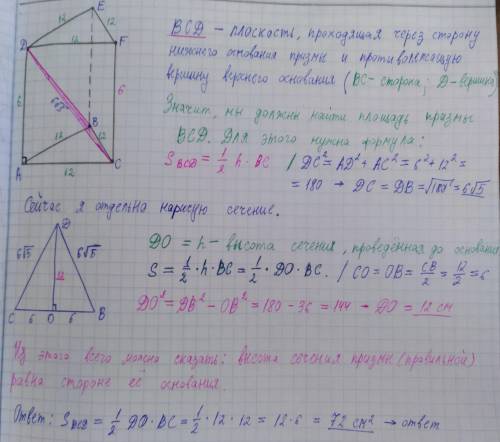 BCD – плоскость, проходящая через сторону
нижнего основания призмы и противолежащую
вершину верхнего основания (BC - сторона; D - вершина)
Значит, мы должны найти площадь призмы
BCD. Для этого нужна формула:
S_BCD = 1/2 h · BC / DC² = AD² + AC² = 6² + 12² =
= 180 → DC = DB = √180 = 6√5
E
12
12
D
12
F
6
6√5
6
B
12
12
A
12
C
Сейчас я отдельно нарисую сечение.
D
6√5
6√5
12
C 6 O 6 B
DO = h – высота сечения, проведённая до основания
S = 1/2 · h · BC = 1/2 · DO · BC. / CO = OB = CB/2 = 12/2 = 6
DO² = DB² – OB² = 180 – 36 = 144 → DO = 12 см
Из этого всего можно сказать: высота сечения призмы (правильной)
равна стороне её основания.
Ответ: S_BCD = 1/2 DO · BC = 1/2 · 12 · 12 = 12 · 6 = 72 см² → ответ